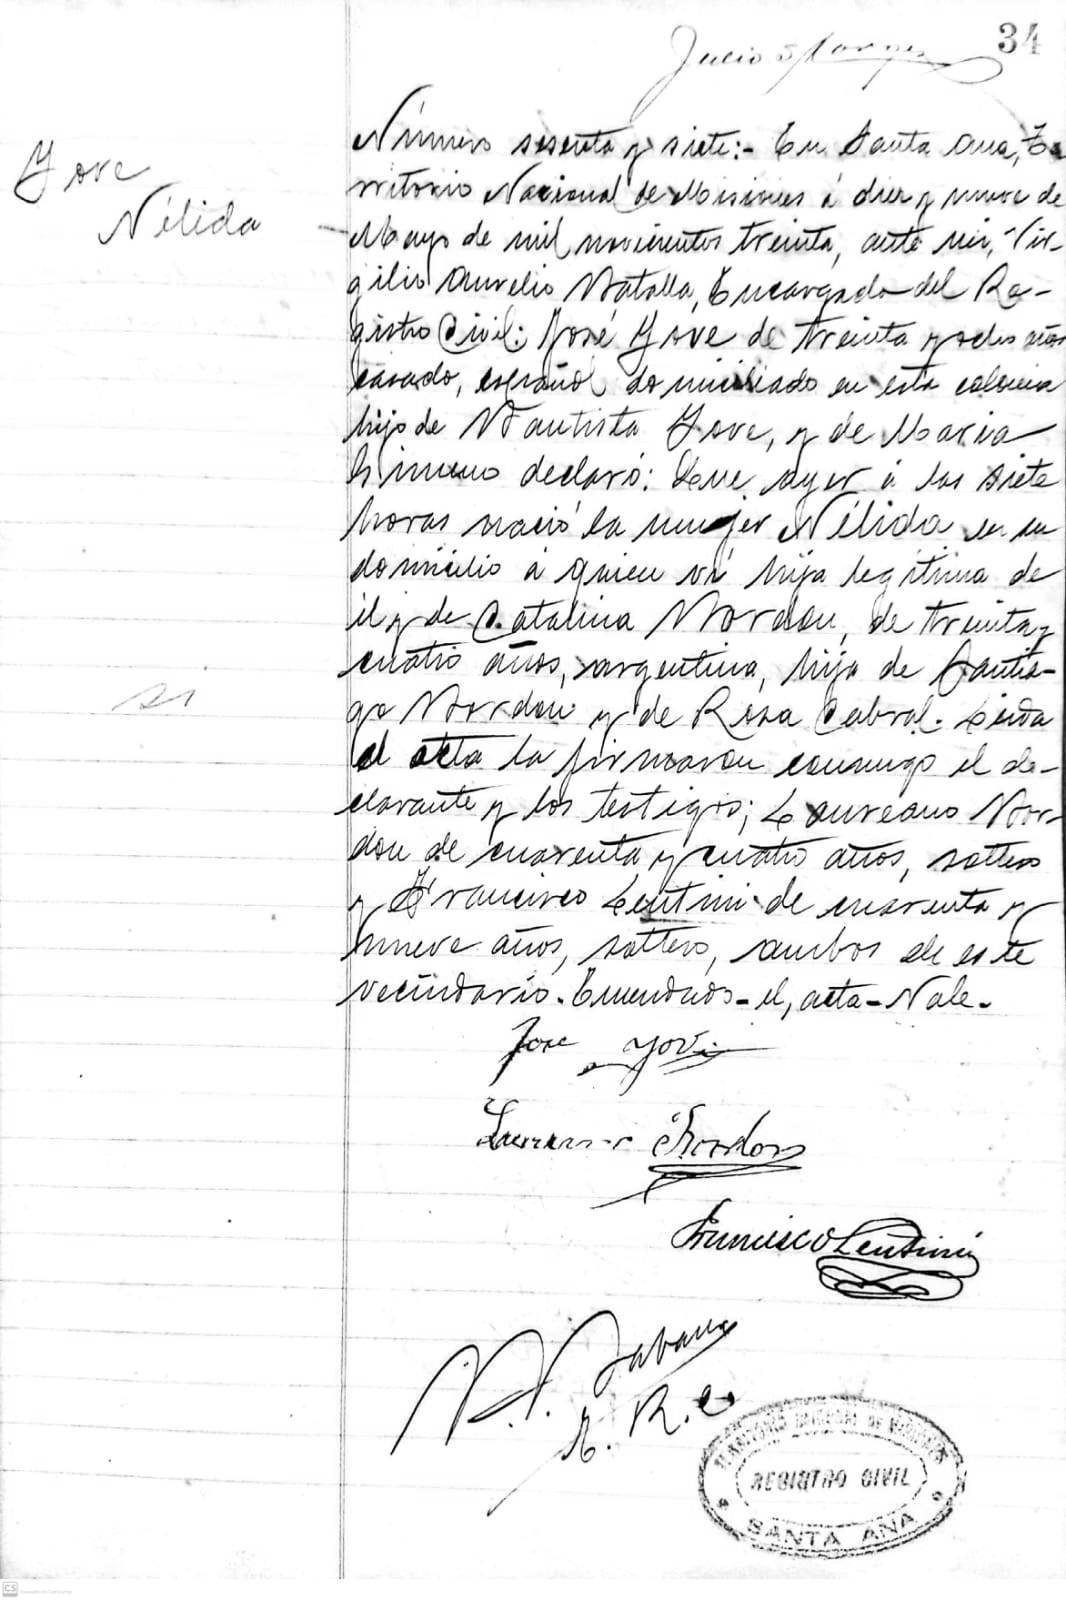 34
Julio
Jove
Nélida
Número sesenta y siete:- En Santa Ana, Te-
rritorio Nacional de Misiones á diez y nueve de
Mayo de mil novecientos treinta, ante mi, Vir-
gilio Aurelio Batalla, Encargado del Re-
gistro Civil: José Jove de treinta y ocho años
casado, español domiciliado en esta colonia
hijo de Bautista Jove, y de Maria
Gimeno declaró: Que ayer á las siete
horas nació la mujer Nélida en su
domicilio á quien vi hija legitima de
él y de Catalina Bordon, de treinta y
cuatro años, argentina, hija de Santia-
go Bordon y de Rosa Cabral. Leida
el acta la firmaron conmigo el de-
clarante y los testigos; Laureano Bor-
don de cuarenta y cuatro años, soltero
y Francisco Lentini de cuarenta y
nueve años, soltero, ambos de este
vecindario. Enmendados - el, acta - Vale.
si
Jose Jove
Laureano Bordon
Francisco Lentini
E. R. C.
TERRITORIO NACIONAL DE MISIONES
REGISTRO CIVIL
SANTA ANA
CS